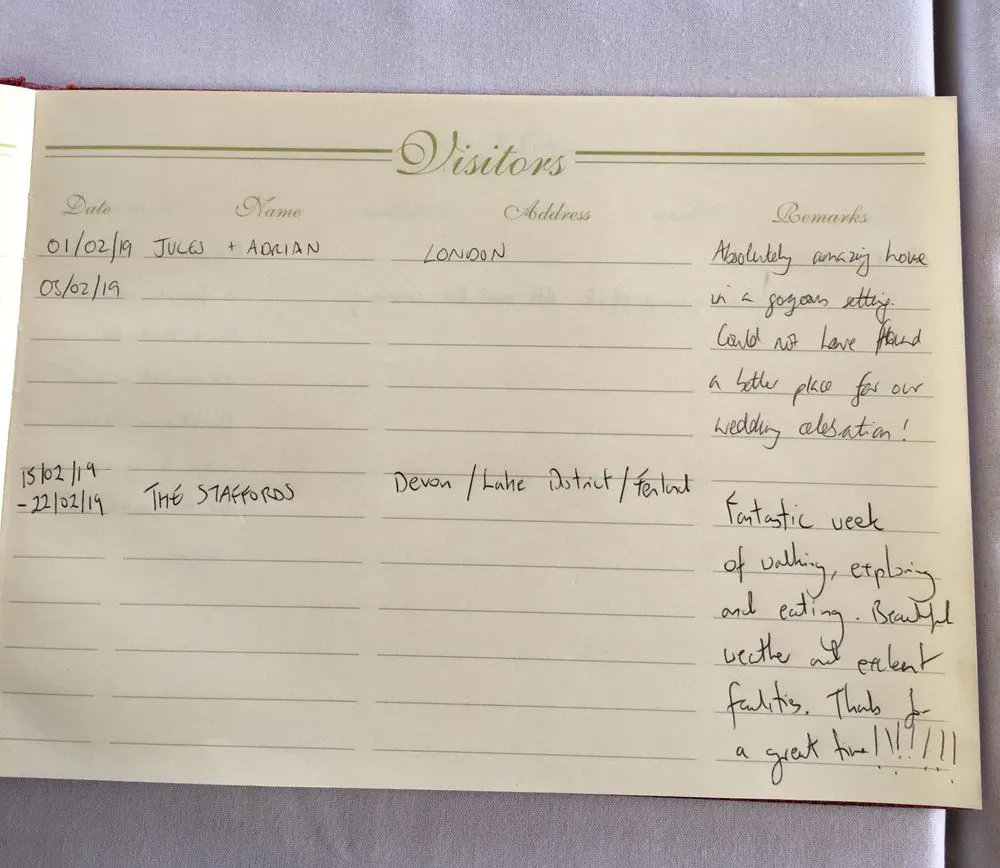 Visitors
Date Name Address Remarks
01/02/19 JULES + ADRIAN LONDON Absolutely amazing house
03/02/19 in a gorgeous setting.
Could not have found
a better place for our
wedding celebration!
15/02/19
- 22/02/19 THE STAFFORDS Devon / Lake District /
Fantastic week
of walking, exploring
and eating. Beautiful
weather and excellent
facilities. Thanks for
a great time!!!!!!!